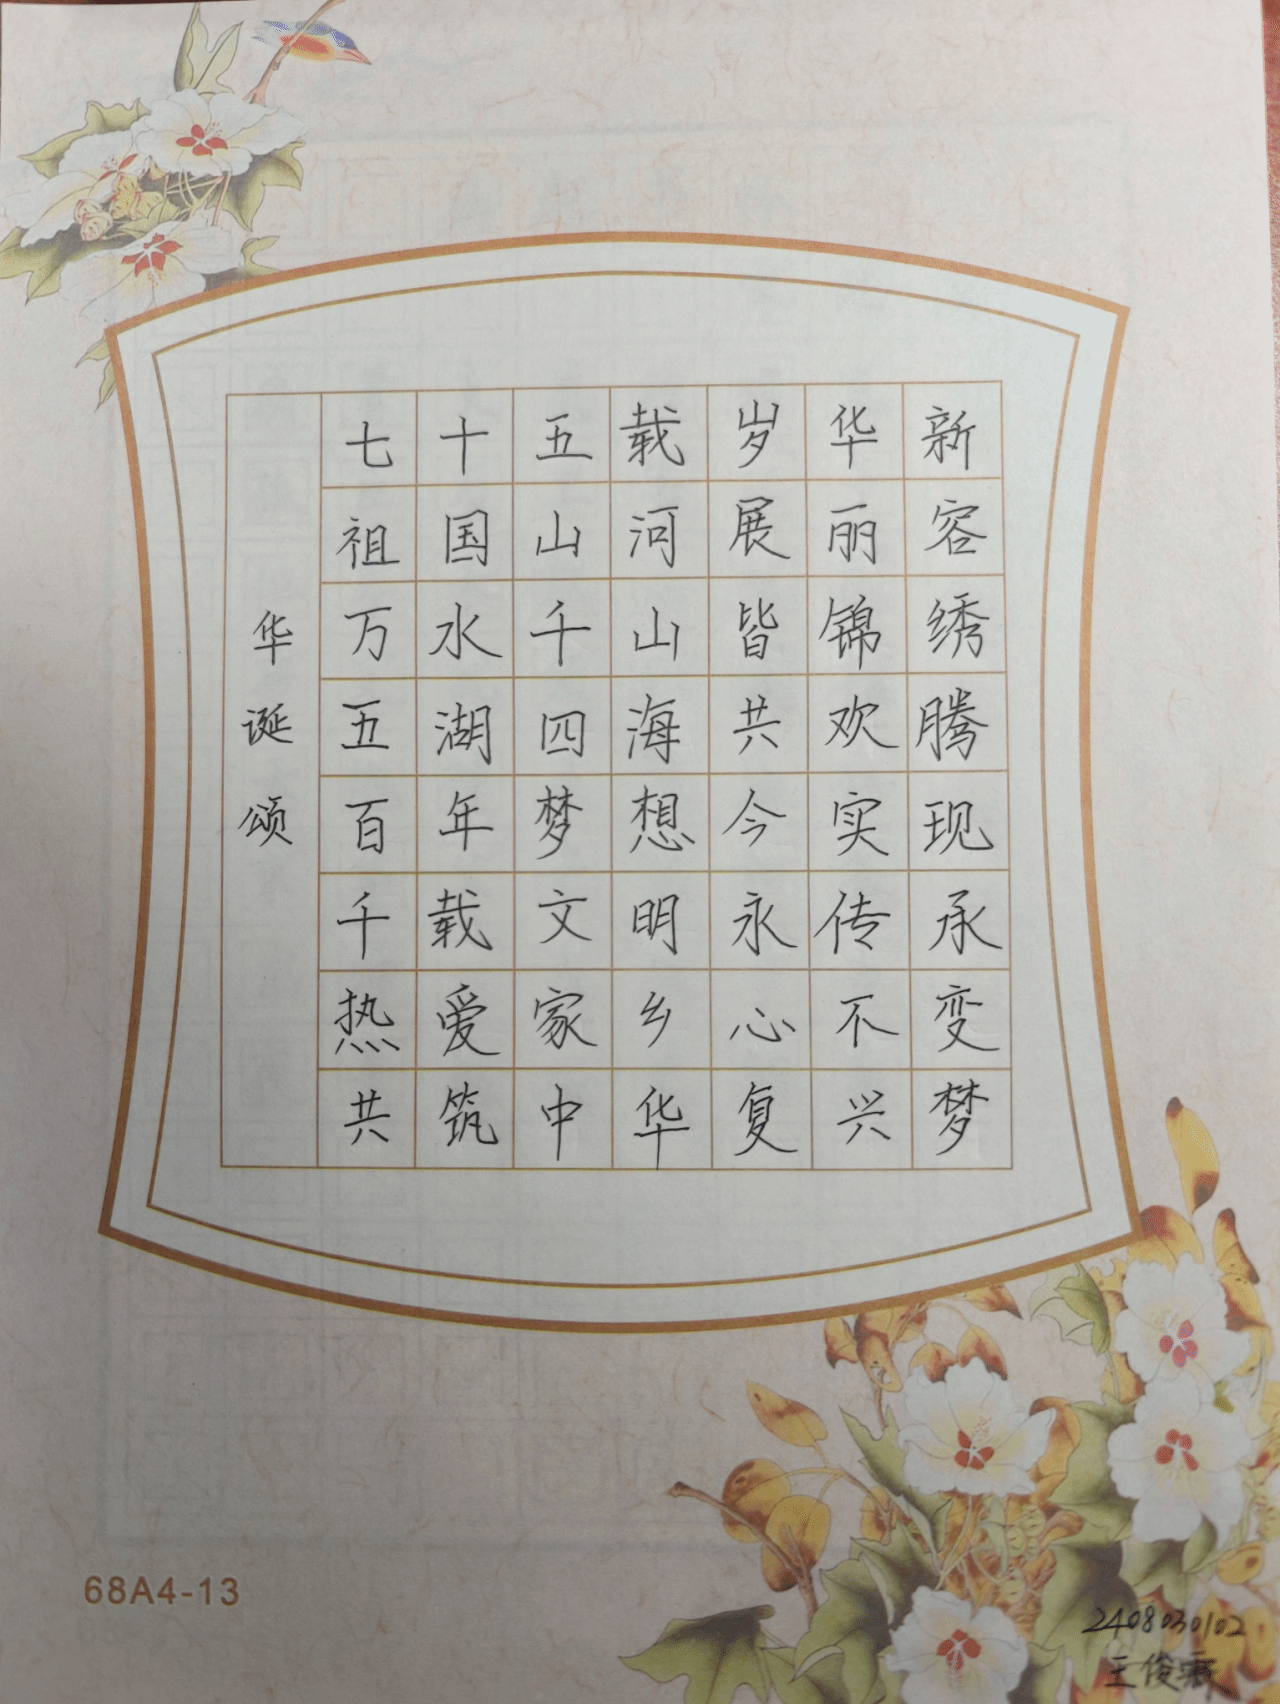 华诞颂
七十五载岁华新
祖国山河展丽容
万水千山皆锦绣
五湖四海共欢腾
百年梦想今实现
千载文明永传承
热爱家乡心不变
共筑中华复兴梦
68A4-13
2408030102
王俊